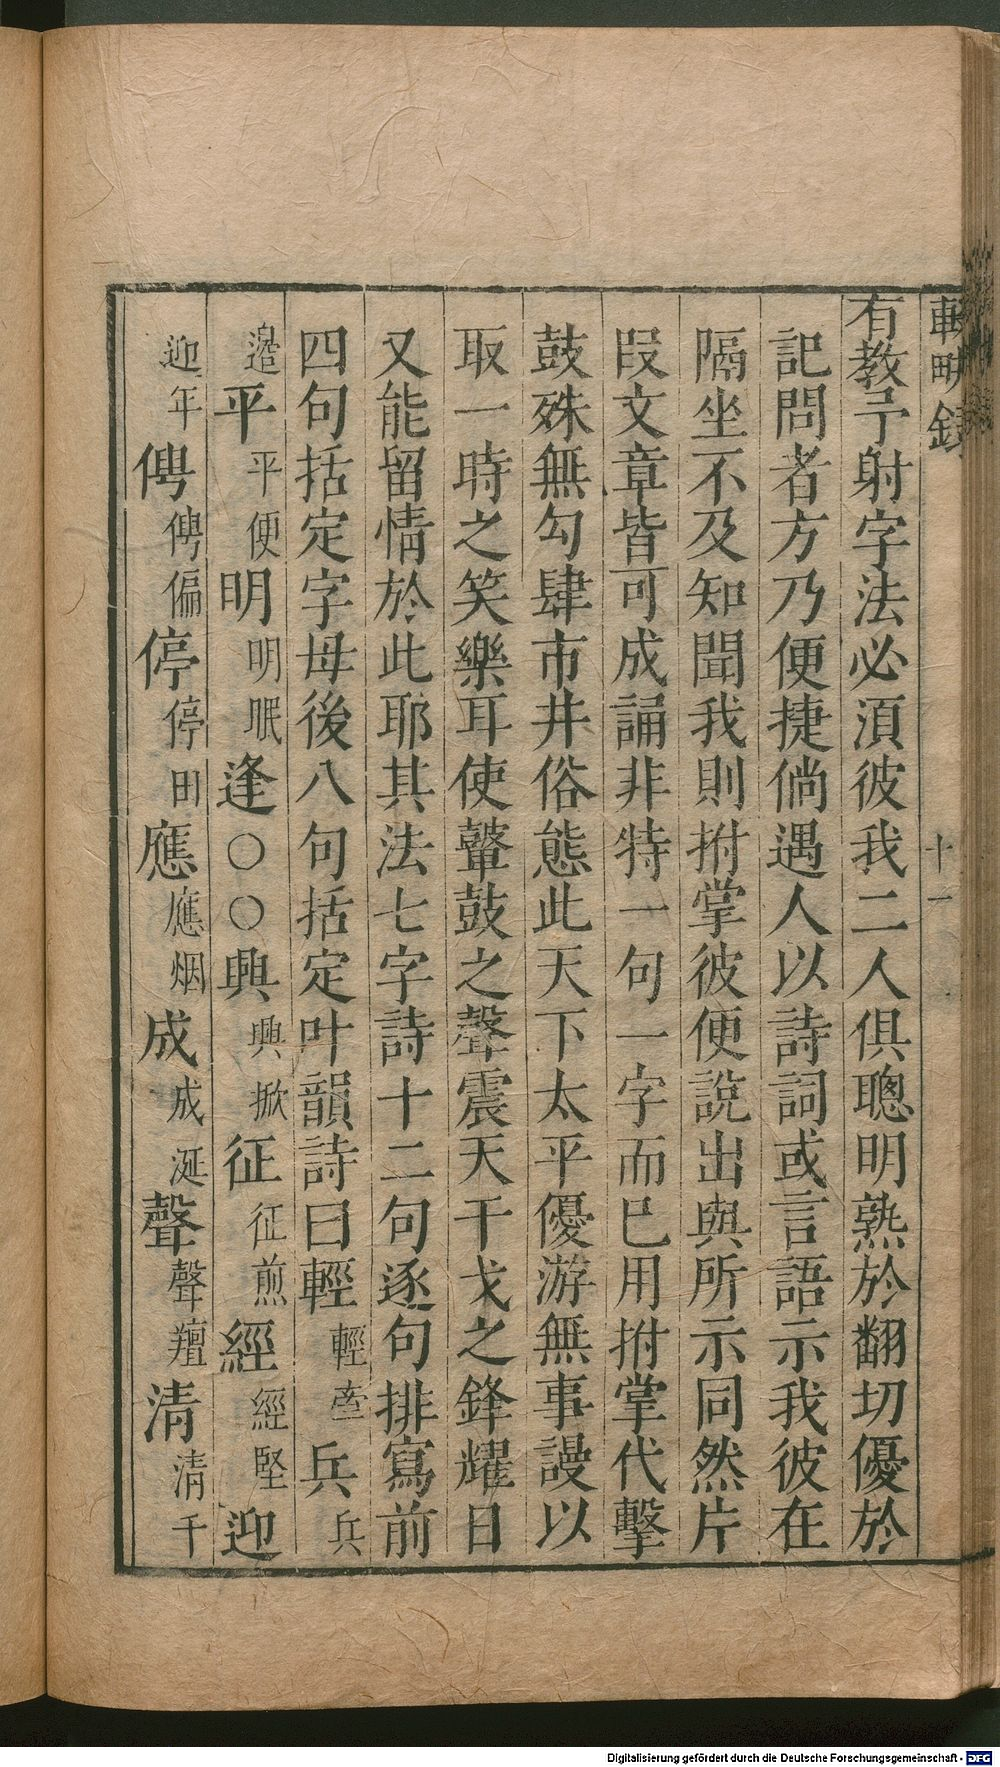 輟畊錄
十一
有教予射字法必須彼我二人俱聰明熟於翻切優於
記問者方乃便捷倘遇人以詩詞或言語示我彼在
隔坐不及知聞我則拊掌彼便說出與所示同然片
段文章皆可成誦非特一句一字而已用拊掌代擊
鼓殊無勾肆市井俗態此天下太平優游無事謾以
取一時之笑樂耳使鼙鼓之聲震天干戈之鋒耀日
又能留情於此耶其法七字詩十二句逐句排寫前
四句括定字母後八句括定叶韻詩曰輕輕牽兵兵
邉平平便明明眠逢○○興興掀征征煎經經堅迎
迎年俜俜偏停停田應應烟成成涎聲聲羶清清千
Digitalisierung gefördert durch die Deutsche Forschungsgemeinschaft - DFG